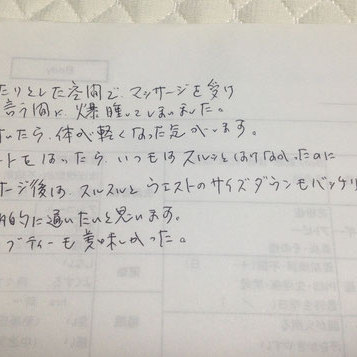 たりとした空間で、マッサージを受け
言う間に、爆睡してしまいました。
いたら、体が軽くなった気がします。
ートをはったら、いつもはスルッとはけなかったのに
サージ後は、スルスルとウエストのサイズダウンもバッチリ
期的に通いたいと思います。
ブティーも美味しかった。